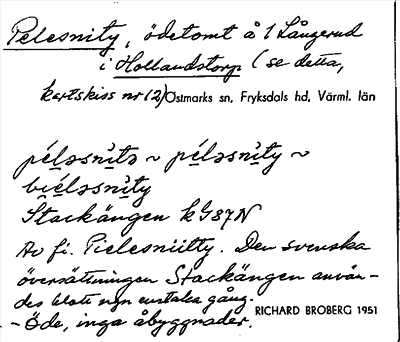 Pelesnity, ödetomt å 1 Långerud
i Hollandstorp (se detta,
kartskiss nr 12) Östmarks sn, Fryksdals hd, Värml. län
péləsnìtə ~ péləsnìty ~
biéləsnìty
Stackängen kG87N
Av fi. Pielesniitty. Den svenska
översättningen Stackängen använ-
des blott ngn enstaka gång.
RICHARD BROBERG 1951
- Öde, inga åbyggnader.